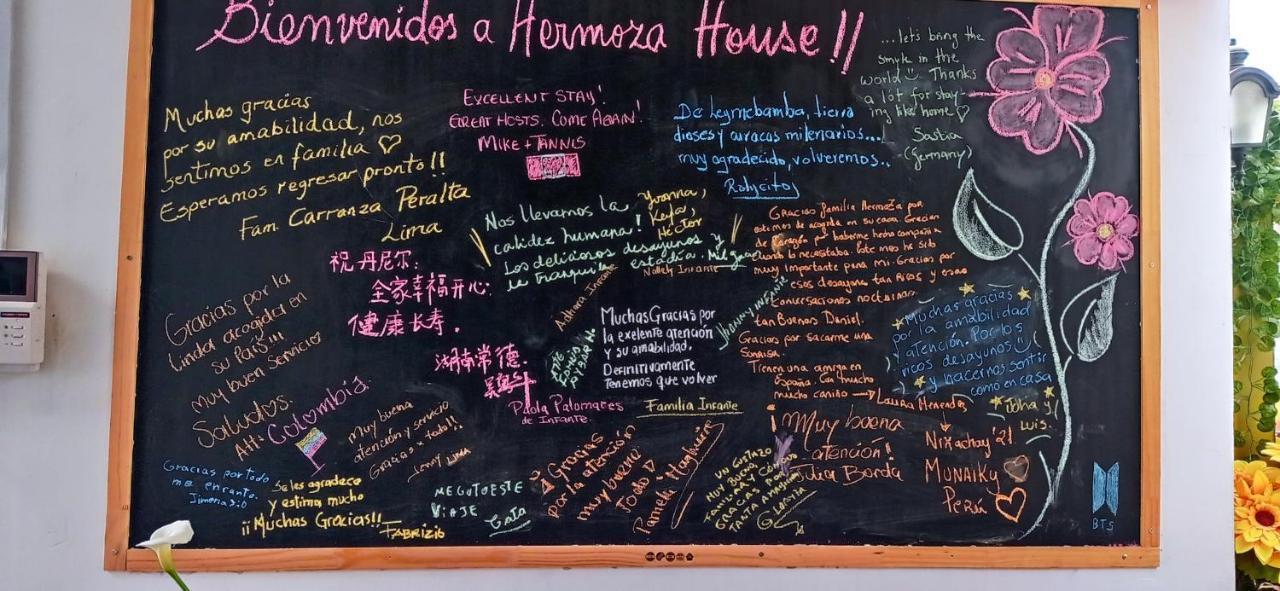 Bienvenidos a Hermoza House!!
Muchas gracias
por su amabilidad, nos
sentimos en familia
Esperamos regresar pronto!!
Fam. Carranza Peralta
Lima
EXCELLENT STAY!
GREAT HOSTS. COME AGAIN!
MIKE + TANNIS
De Leymebamba, tierra
dioses y curacas milenarios...
muy agradecido, volveremos..
...let's bring the
smyle in the
world Thanks
a lot for stay-
ing like home
Saskia
(Germany)
Nos llevamos la
calidez humana!
Los deliciosos desayunos y
la tranquila estadía.
Yvonna,
Keyla,
Héctor
Nolely Infante
Gracias familia Hermoza por
de corazón por haberme hecho compañía
cuando lo necesitaba. Este mes ha sido
muy importante para mi. Gracias por
esos desayunos tan ricos y esas
conversaciones nocturnas
tan buenas Daniel.
Gracias por sacarme una
Sonrisa.
Tienen una amiga en
España. Con mucho
mucho cariño → Laura Menendes
祝丹尼尔:
全家幸福开心.
健康长寿.
湖南常德.
Gracias por la
linda acogida en
su País!!!
muy buen servicio
Saludos.
Att: Colombia.
Muchas Gracias por
la exelente atención
y su amabilidad,
Definitivamente
Tenemos que volver
Jhonny Infante
Paola Palomares
de Infante.
Familia Infante
Muchas gracias
por la amabilidad
y atención. Por los
ricos desayunos
y hacernos sentir
como en casa
Joha y
Luis.
Muy buena
atención y servicio
Gracias x todo!!
Jenny Lima
Gracias por todo
me encanto.
Jimena :)
Se les agradece
y estima mucho
¡¡Muchas Gracias!!
FABRIZIO
ME GUTO ESTE
VIAJE
Gracias
por la atención
muy bueno
todo
Pamela
UN GUSTAZO
MUY BUENA
FAMILIA Y CÓMODO
GRACIAS POR
TANTA AMABILIDAD
¡Muy buena
atención!
Julia Borda
Nixachay '21
MUNAIKY
Perú
BTS